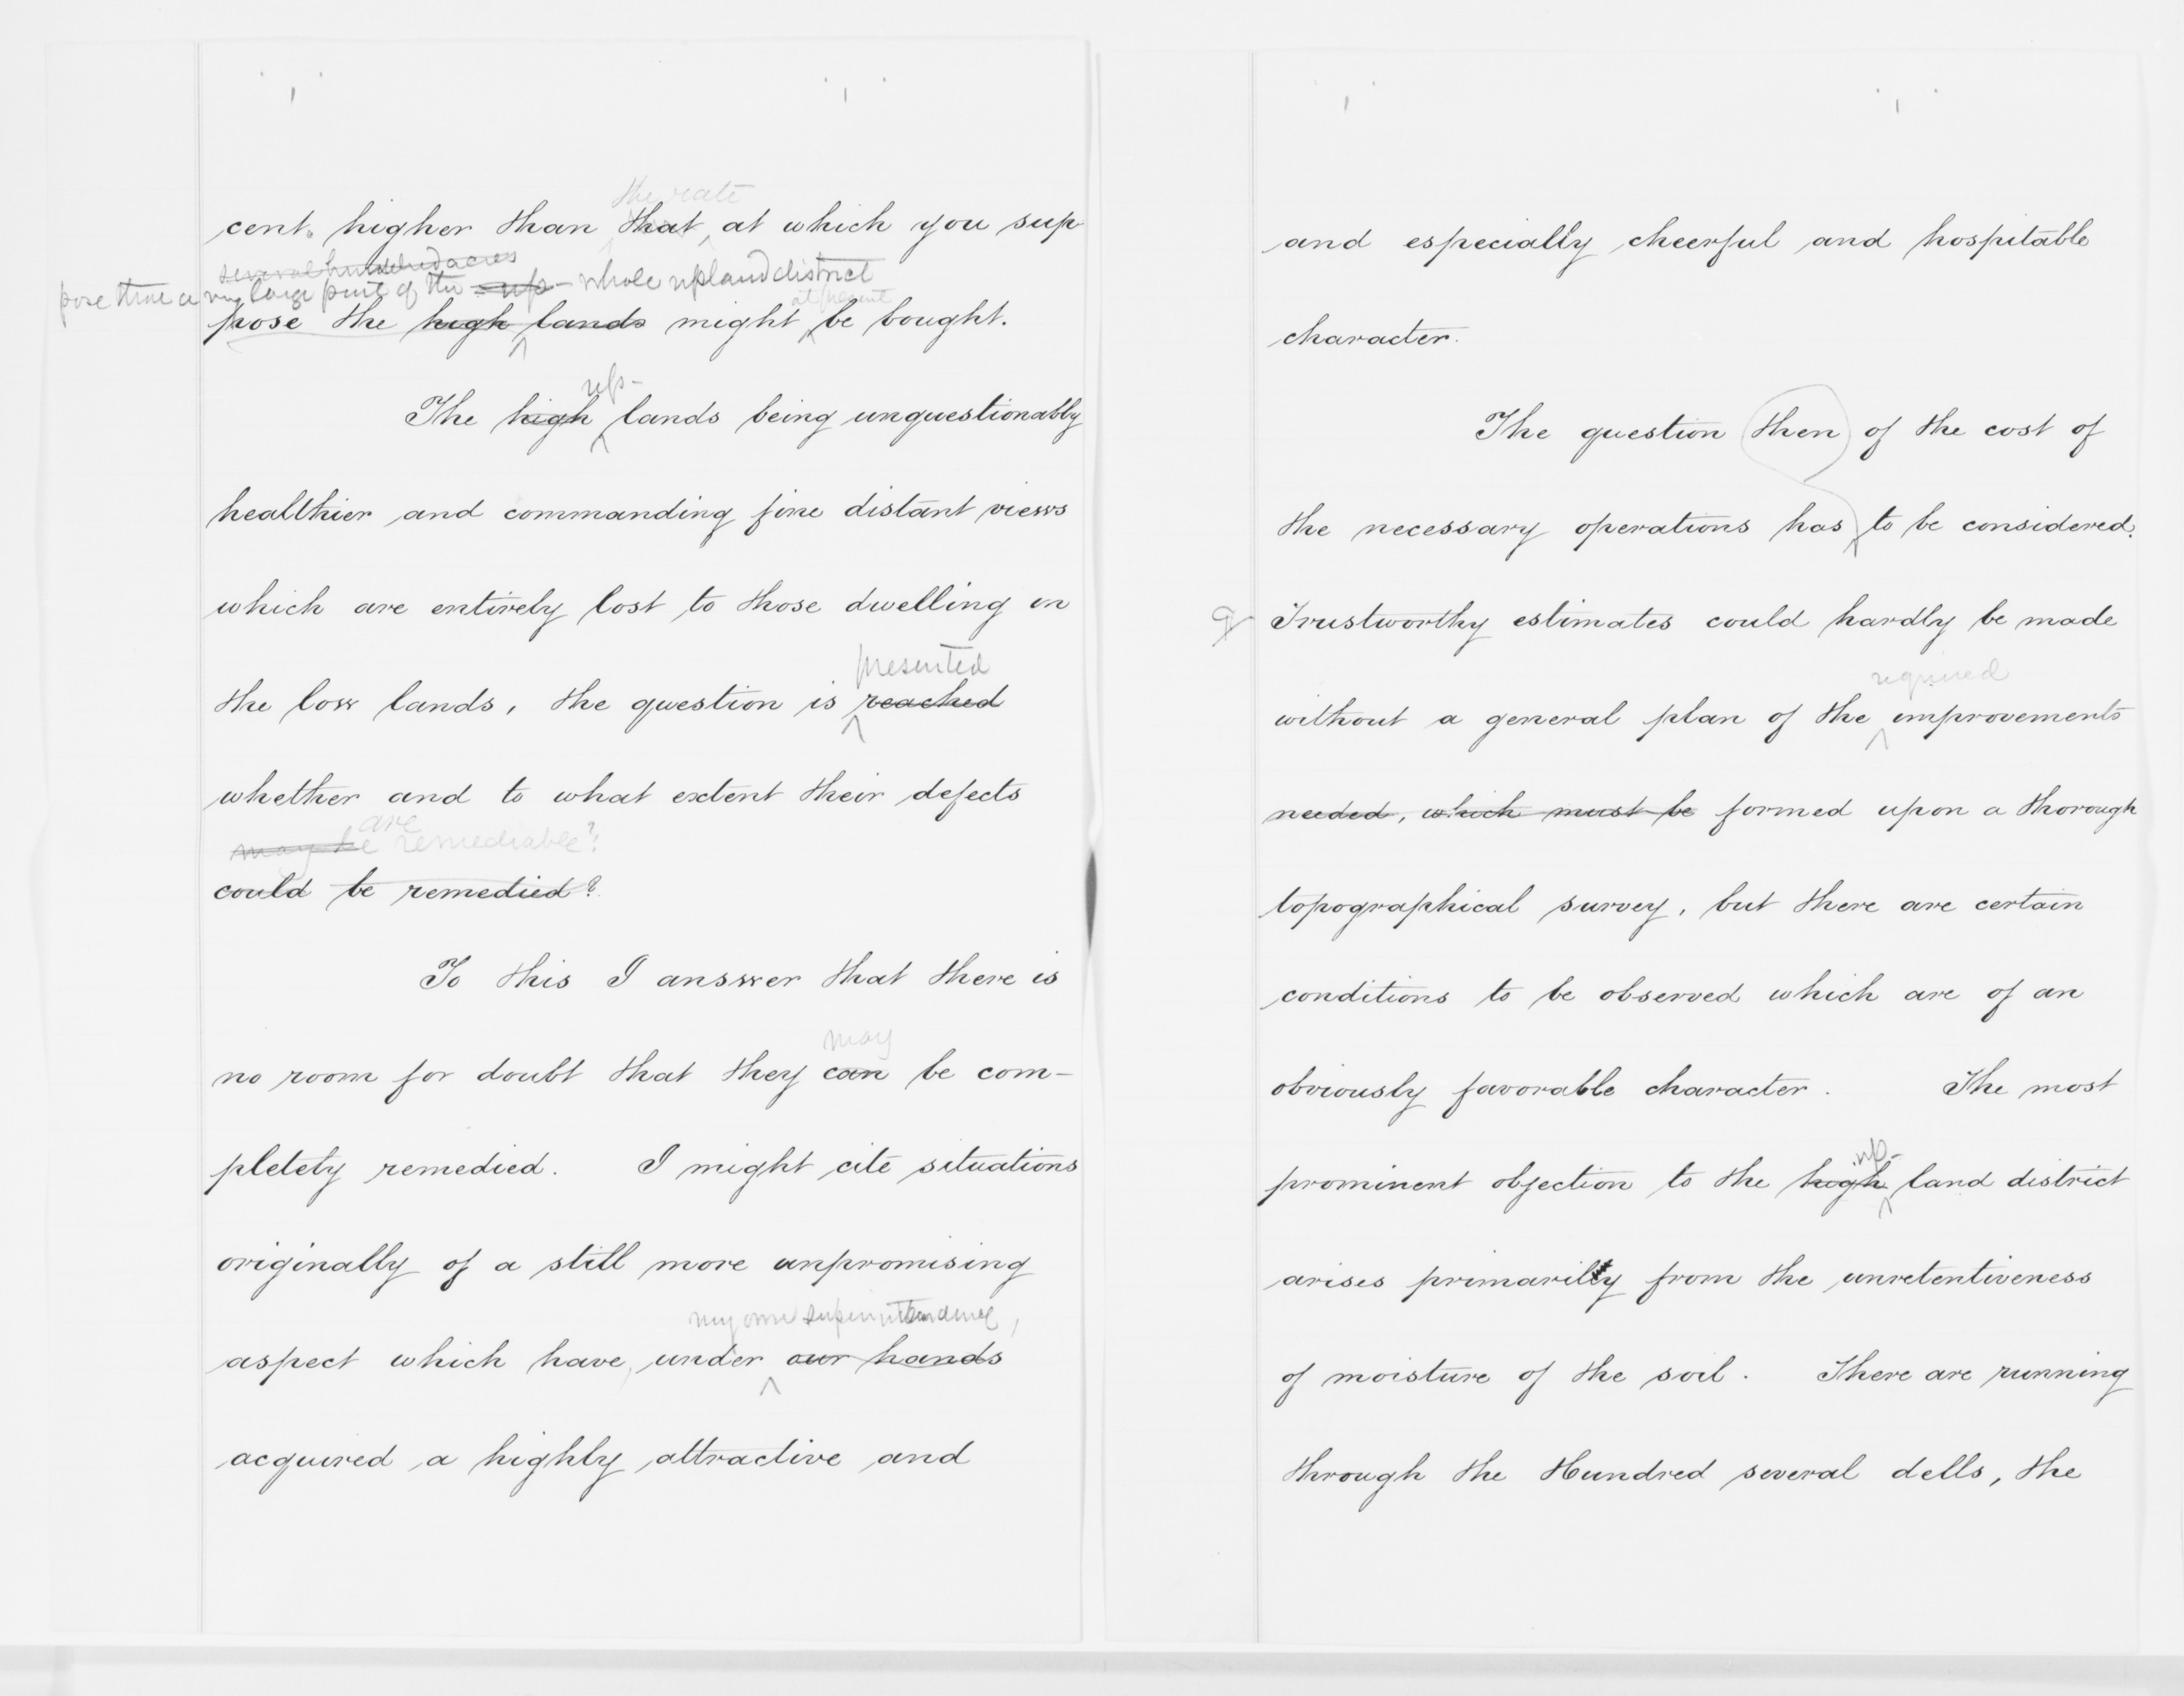 the rate
cent. higher than that, at which you sup
several hundred acres
pose that a very large part of the up- whole upland district
at present
pose the high lands might be bought.
up-
The high lands being unquestionably
healthier and commanding fine distant views
which are entirely lost to those dwelling on
presented
the low lands, the question is reached
whether and to what extent their defects
are
may be remediable?
could be remedied?
To this I answer that there is
may
no room for doubt that they can be com-
pletely remedied. I might cite situations
originally of a still more unpromising
my own superintendence,
aspect which have, under our hands
acquired a highly attractive and
and especially cheerful and hospitable
character.
The question then of the cost of
the necessary operations has to be considered.
¶ Trustworthy estimates could hardly be made
required
without a general plan of the improvements
needed, which must be formed upon a thorough
topographical survey, but there are certain
conditions to be observed which are of an
obviously favorable character. The most
up-
prominent objection to the high land district
arises primarily from the unretentiveness
of moisture of the soil. There are running
through the Hundred several dells, the